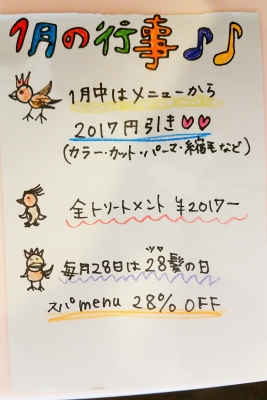 1月の行事♪♫
1月中はメニューから
2017円引き♡♡
(カラー・カット・パーマ・縮毛など)
全トリートメント ¥2017ー
毎月28日は28髪の日
ツヤ
スパmenu 28% OFF